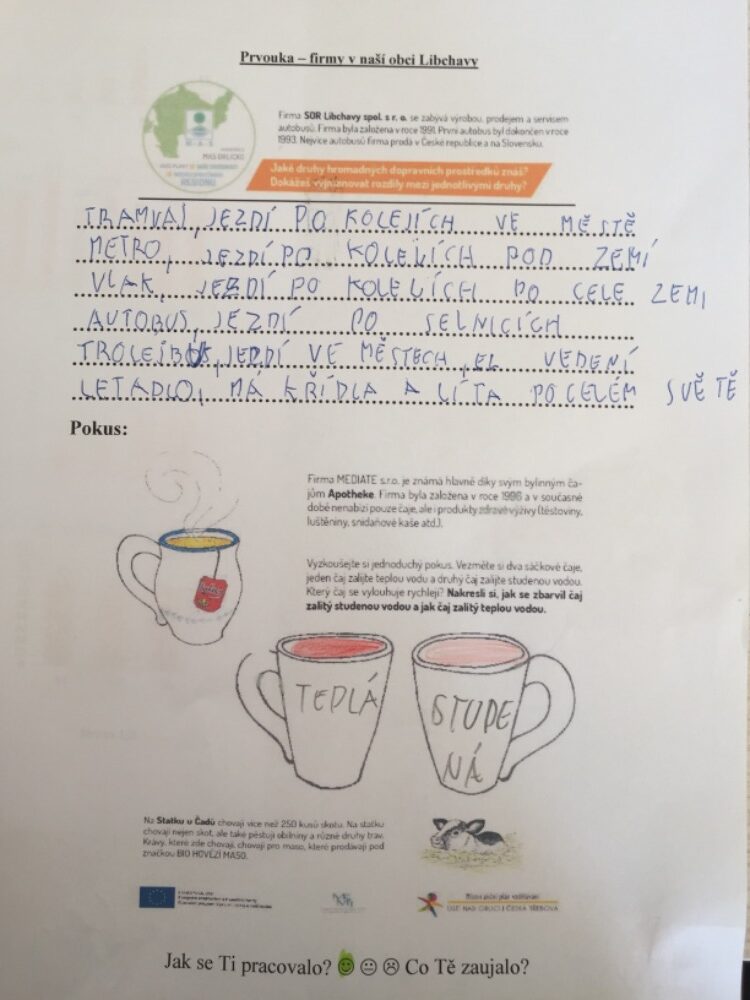 Prvouka – firmy v naší obci Libchavy
Firma SOR Libchavy spol. s r. o. se zabývá výrobou, prodejem a servisem
autobusů. Firma byla založena v roce 1991. První autobus byl dokončen v roce
1993. Nejvíce autobusů firma prodá v České republice a na Slovensku.
MAS ORLICKO
REGIONU
Jaké druhy hromadných dopravních prostředků znáš?
Dokážeš vyjmenovat rozdíly mezi jednotlivými druhy?
TRAMVAJ, JEZDÍ PO KOLEJÍCH VE MĚSTĚ
METRO, JEZDÍ PO KOLEJÍCH POD ZEMÍ
VLAK, JEZDÍ PO KOLEJÍCH PO CELE ZEMI
AUTOBUS, JEZDÍ PO SELNICÍCH
TROLEJBUS, JEZDÍ VE MĚSTECH, EL VEDENÍ
LETADLO, MÁ KŘÍDLA A LÍTA PO CELÉM SVĚTĚ
Pokus:
Firma MEDIATE s.r.o. je známá hlavně díky svým bylinným ča-
jům Apotheke. Firma byla založena v roce 1996 a v současné
době nenabízí pouze čaje, ale i produkty zdravé výživy (těstoviny,
luštěniny, snídaňové kaše atd.).
Vyzkoušejte si jednoduchý pokus. Vezměte si dva sáčkové čaje,
jeden čaj zalijte teplou vodu a druhý čaj zalijte studenou vodou.
Který čaj se vylouhuje rychleji? Nakresli si, jak se zbarvil čaj
zalitý studenou vodou a jak čaj zalitý teplou vodou.
TEPLÁ
STUDE
NÁ
Na Statku u Čadů chovají více než 250 kusů skotu. Na statku
chovají nejen skot, ale také pěstují obilniny a různé druhy trav.
Krávy, které zde chovají, chovají pro maso, které prodávají pod
značkou BIO HOVĚZÍ MASO.
ÚSTÍ NAD ORLICÍ | ČESKÁ TŘEBOVÁ
Jak se Ti pracovalo? ☺ 😐 ☹ Co Tě zaujalo?